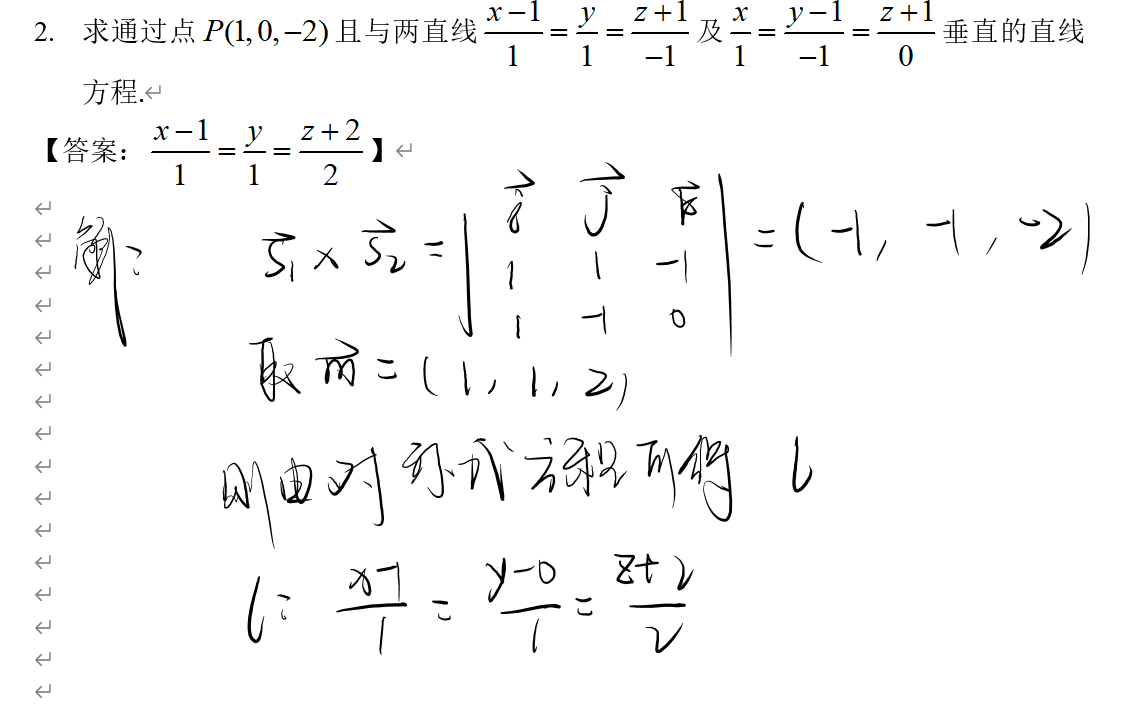 2. 求通过点 P(1,0,−2) 且与两直线 (x−1)/1 = y/1 = (z+1)/−1 及 x/1 = (y−1)/−1 = (z+1)/0 垂直的直线
方程.↵
【答案： (x−1)/1 = y/1 = (z+2)/2 】↵
解： s₁⃗ × s₂⃗ = | i⃗ j⃗ k⃗ ; 1 1 −1 ; 1 −1 0 | = (−1, −1, −2)
取 m⃗ = (1, 1, 2)
则由对称式方程可得 l
l: (x−1)/1 = (y−0)/1 = (z+2)/2